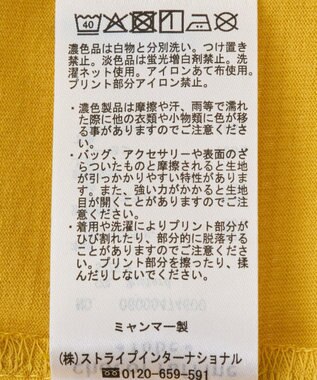 40
濃色品は白物と分別洗い。つけ置き
禁止。淡色品は蛍光増白剤禁止。洗
濯ネット使用。アイロンあて布使用。
プリント部分アイロン禁止。
・濃色製品は摩擦や汗、雨等で濡れ
た際に他の衣類や小物類に色が移
る事がありますのでご注意くださ
い。
・バッグ、アクセサリーや表面のざ
らついたものと摩擦されると生地
が引っかかりやすい特性がありま
す。また、強い力がかかると生地
目が開くことがありますのでご注
意ください。
・着用や洗濯によりプリント部分が
ひび割れたり、部分的に脱落する
ことがありますのでご注意くださ
い。プリント部分を擦ったり、揉
んだりしないでください。
ミャンマー製
(株)ストライプインターナショナル
☎ 0120-659-591